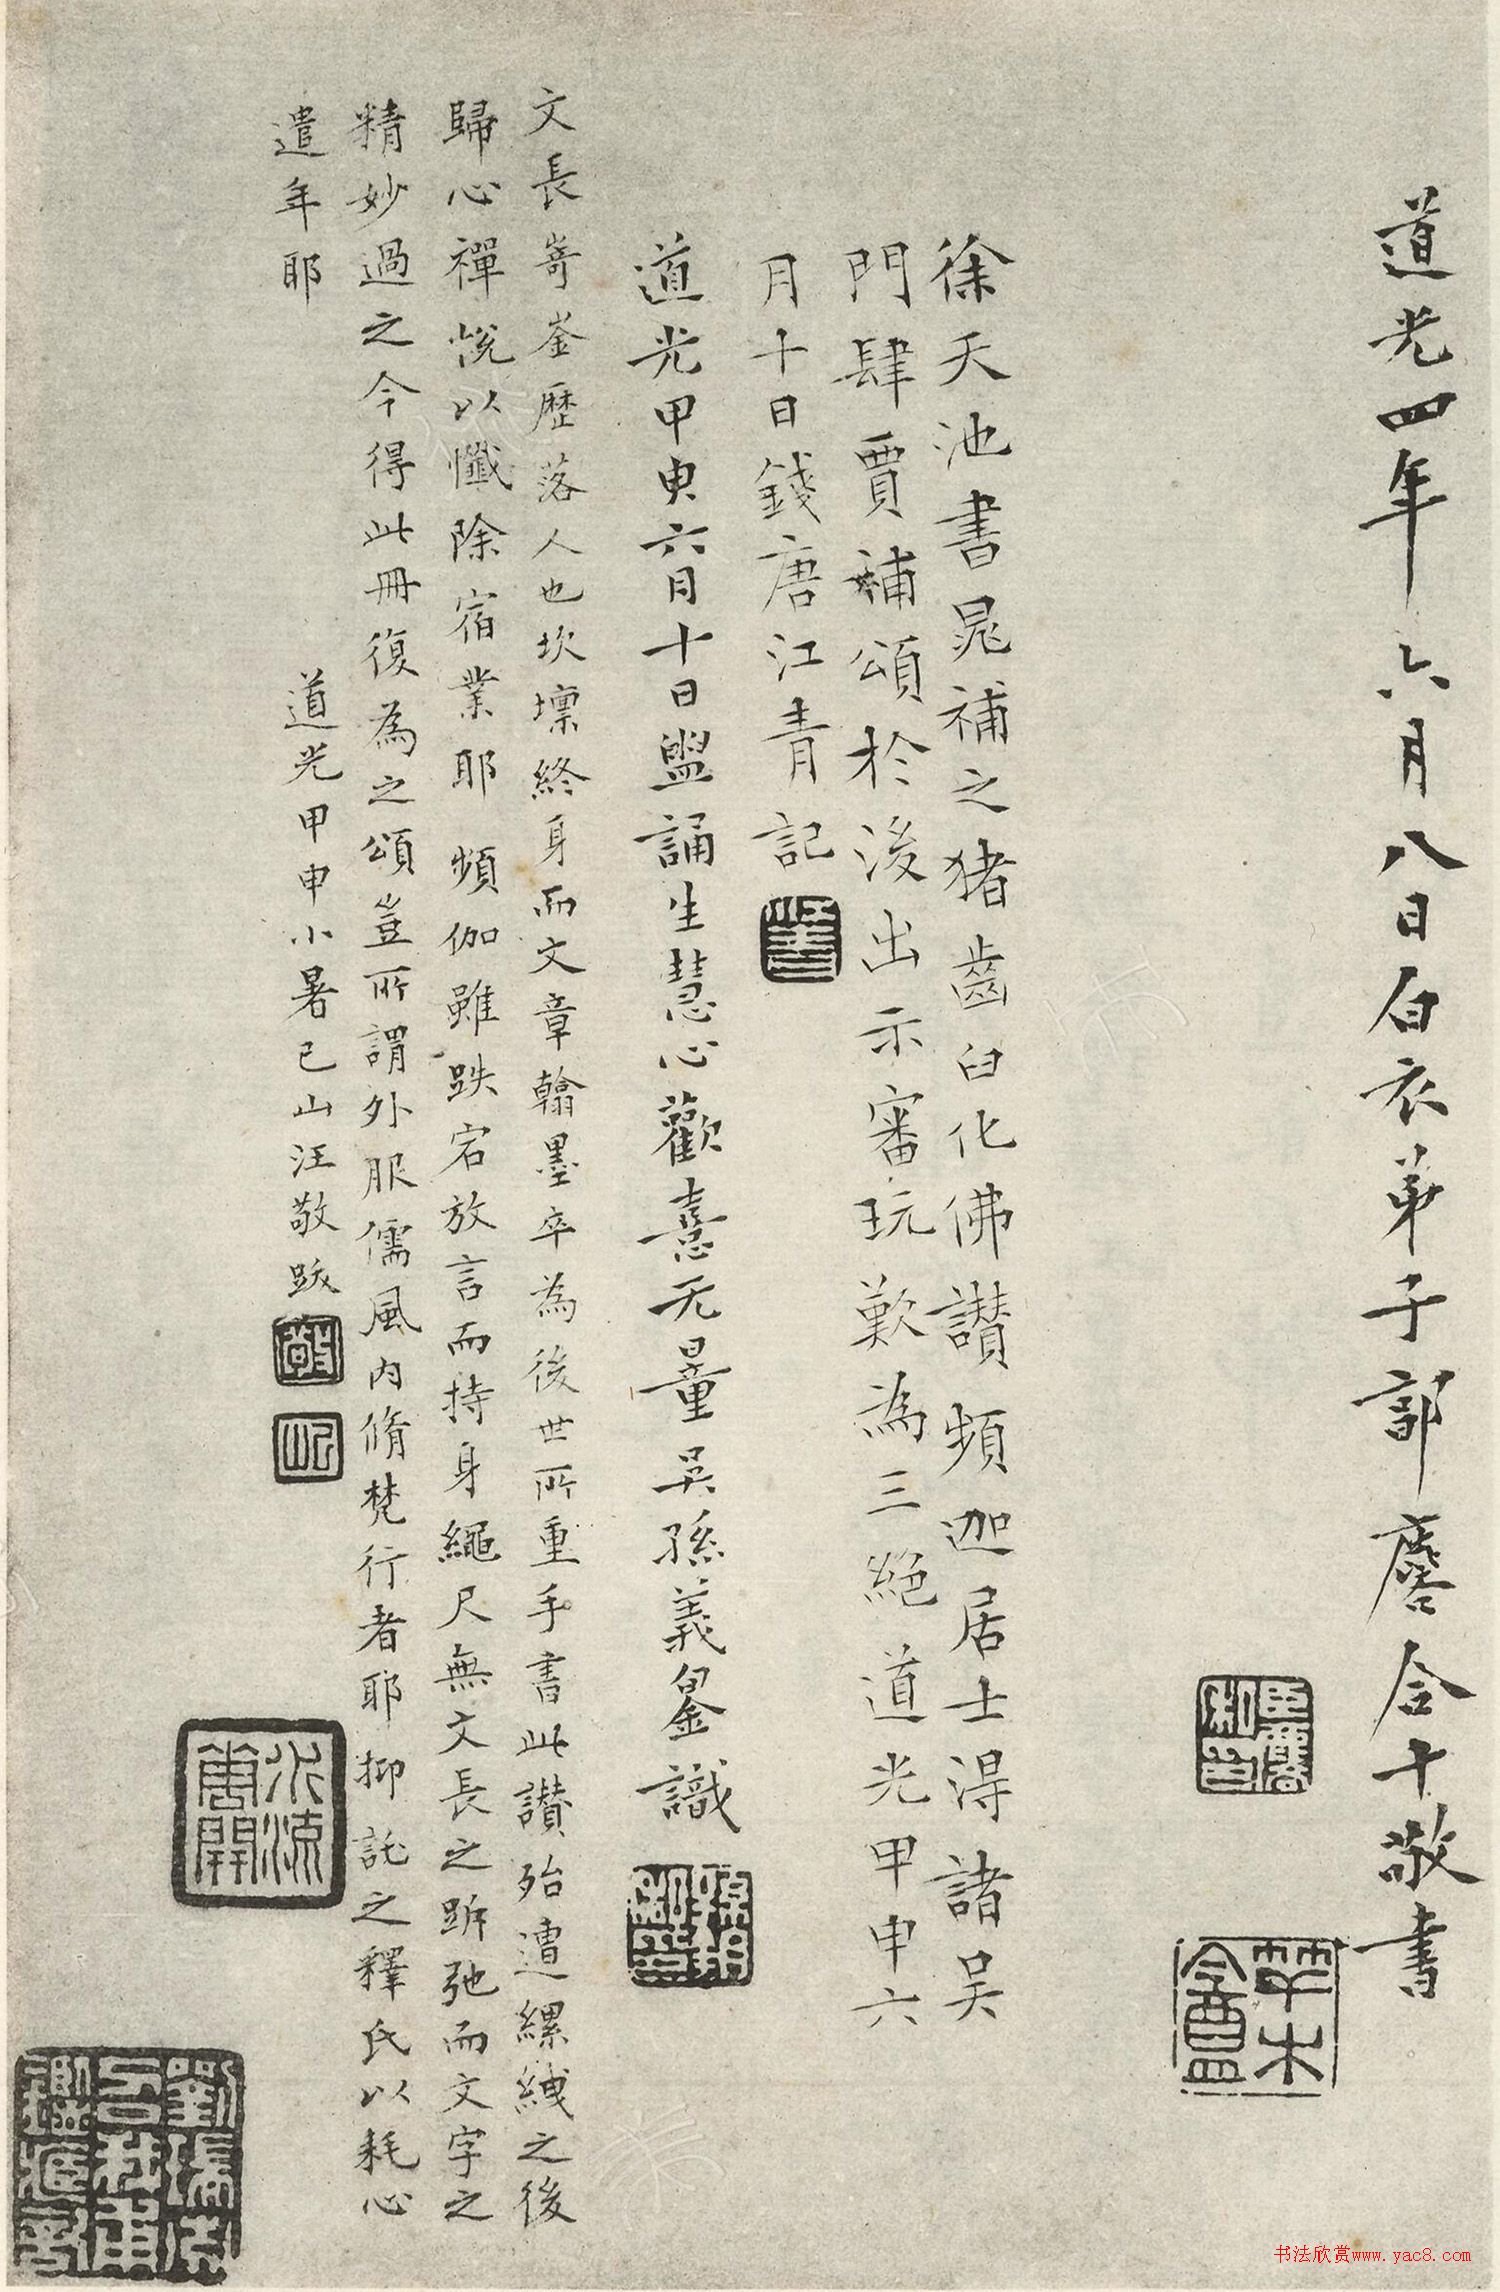 道光四年六月八日白衣弟子郭麐合十敬書
徐天池書晁補之豬齒臼化佛讚頻迦居士得諸吴
門肆賈補頌於後出示審玩歎為三絕道光甲申六
月十日錢唐江青記
道光甲申六月十日盥誦生慧心歡憙无量吴孫義鋆識
文長嵜崟歷落人也坎壈終身而文章翰墨卒為後世所重手書此讚殆遭縲絏之後
歸心禪悅以懺除宿業耶頻伽雖跌宕放言而持身繩尺無文長之跅弛而文字之
精妙過之今得此冊復為之頌豈所謂外服儒風內脩梵行者耶抑託之釋氏以耗心
遣年耶
道光甲申小暑已山汪敬跋
水流
花開
書法欣赏www.yac8.com